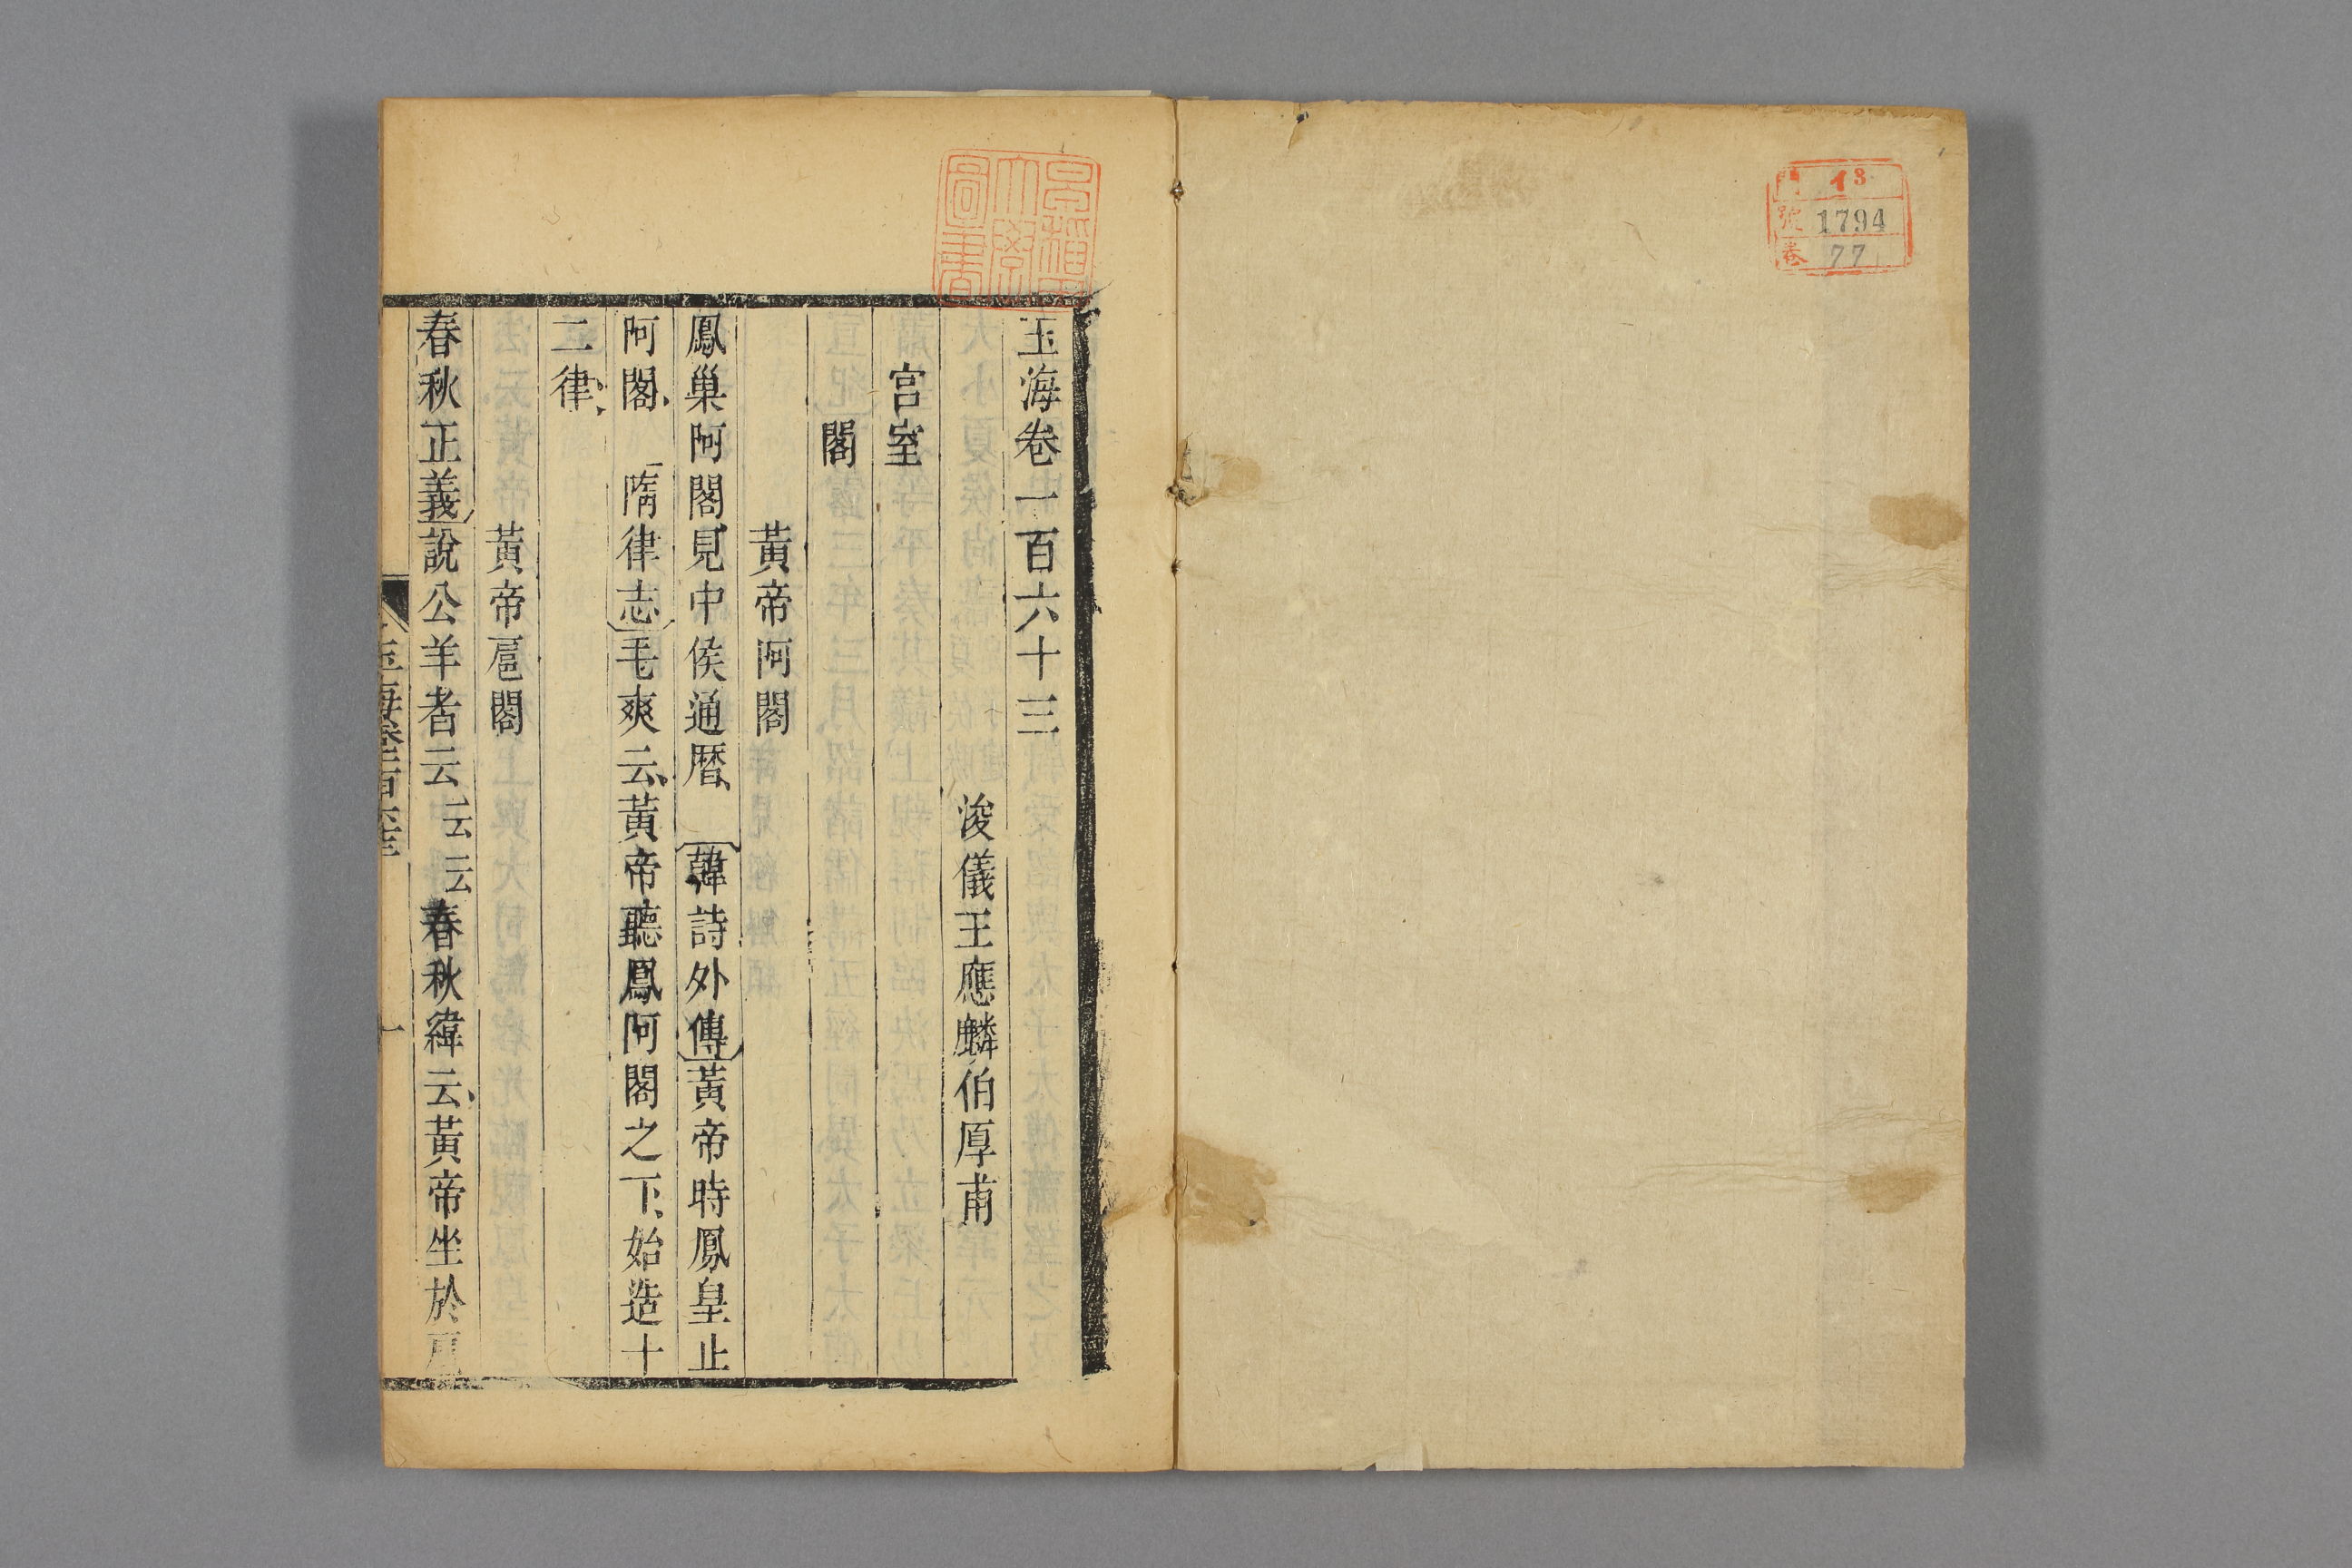 門 イ3
號 1794
卷 77
早稲田大學圖書
玉海卷一百六十三
浚儀王應麟伯厚甫
宮室
閣
黃帝阿閣
鳳巢阿閣見中侯通曆韓詩外傳黃帝時鳳皇止
阿閣隋律志毛爽云黃帝聽鳳阿閣之下始造十
二律
黃帝扈閣
春秋正義說公羊者云云云春秋緯云黃帝坐於扈
玉海卷一百六十三
一